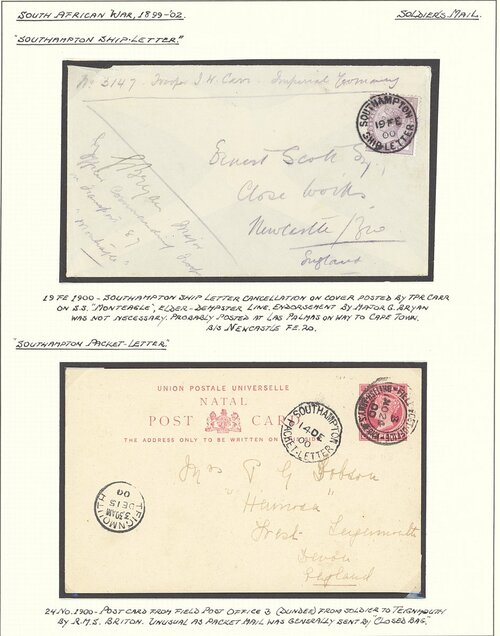 SOUTH AFRICAN WAR, 1899-'02.
SOLDIER'S MAIL.
"SOUTHAMPTON SHIP-LETTER."
No 3147. Trooper J. H. Carr. Imperial Yeomanry
SOUTHAMPTON
19 FE
00
SHIP-LETTER
G Bryan Major
Officer Commanding Troops
Transport 27
"Monteagle"
Ernest Scott Esq
Close Works
Newcastle/Tyne
England
19 FE 1900 - SOUTHAMPTON SHIP LETTER CANCELLATION ON COVER POSTED BY TPR CARR
ON S.S. "MONTEAGLE", ELDER-DEMPSTER LINE. ENDORSEMENT BY MAJOR G. BRYAN
WAS NOT NECESSARY. PROBABLY POSTED AT LAS PALMAS ON WAY TO CAPE TOWN.
B/S NEWCASTLE FE.20.
"SOUTHAMPTON PACKET-LETTER."
UNION POSTALE UNIVERSELLE
NATAL
POST CARD
THE ADDRESS ONLY TO BE WRITTEN ON
SOUTHAMPTON
14 DE
00
PACKET-LETTER
NO 24
00
Mrs P G Hobson
West Teignmouth
Devon
England
TEIGNMOUTH
3.30AM
DE 15
00
24 NO. 1900 - POST CARD FROM FIELD POST OFFICE 3 (DUNDEE) FROM SOLDIER TO TEIGNMOUTH
BY R.M.S. BRITON. UNUSUAL AS PACKET MAIL WAS GENERALLY SENT BY "CLOSED BAG."